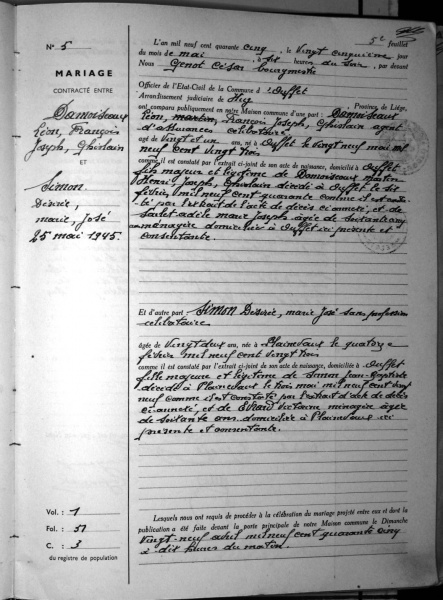 5e feuillet
N° 5
MARIAGE
CONTRACTÉ ENTRE
Damoiseaux
Léon, François
Joseph, Ghislain
ET
Simon
Désirée,
marie, José
25 mai 1945.
L'an mil neuf cent quarante cinq, le vingt cinquième jour
du mois de mai, à dix heures du soir, par devant
Nous Genot César bourgmestre
Officier de l'Etat-Civil de la Commune d'Ouffet
Arrondissement judiciaire de Huy, Province de Liége,
ont comparu publiquement en notre Maison commune d'une part: Damoiseaux
Léon, martin, François Joseph, Ghislain agent
d'assurances célibataire
âgé de vingt et un ans, né à Ouffet le vingt neuf mai mil
neuf cent vingt trois
comme il est constaté par l'extrait ci-joint de son acte de naissance, domicilié à Ouffet
fils majeur et légitime de Damoiseaux martin
Henri, Joseph, Ghislain décédé à Ouffet le six
février mil neuf cent quarante comme il est consta-
té par l'extrait de l'acte de décès ci annexé, et de
adèle marie Joseph âgée de soixante cinq
ans ménagère domiciliée à Ouffet ici présente et
consentante.
Et d'autre part Simon Désirée, marie José sans profession
célibataire
âgée de vingt deux ans, née à Plainevaux le quatorze
février mil neuf cent vingt trois
comme il est constaté par l'extrait ci-joint de son acte de naissance, domiciliée à Ouffet
fille majeure et légitime de Simon Jean-Baptiste
décédé à Plainevaux le trois mai mil neuf cent vingt
neuf comme il est constaté par l'extrait d'acte de décès
ci-annexé, et de Evrard Victorine ménagère âgée
de soixante ans domiciliée à Plainevaux ici
présente et consentante.
Lesquels nous ont requis de procéder à la célébration du mariage projeté entre eux et dont la
publication a été faite devant la porte principale de notre Maison commune le Dimanche
vingt-neuf avril mil neuf cent quarante cinq
à dix heures du matin.
Vol.: 1
Fol.: 51
C.: 3
du registre de population